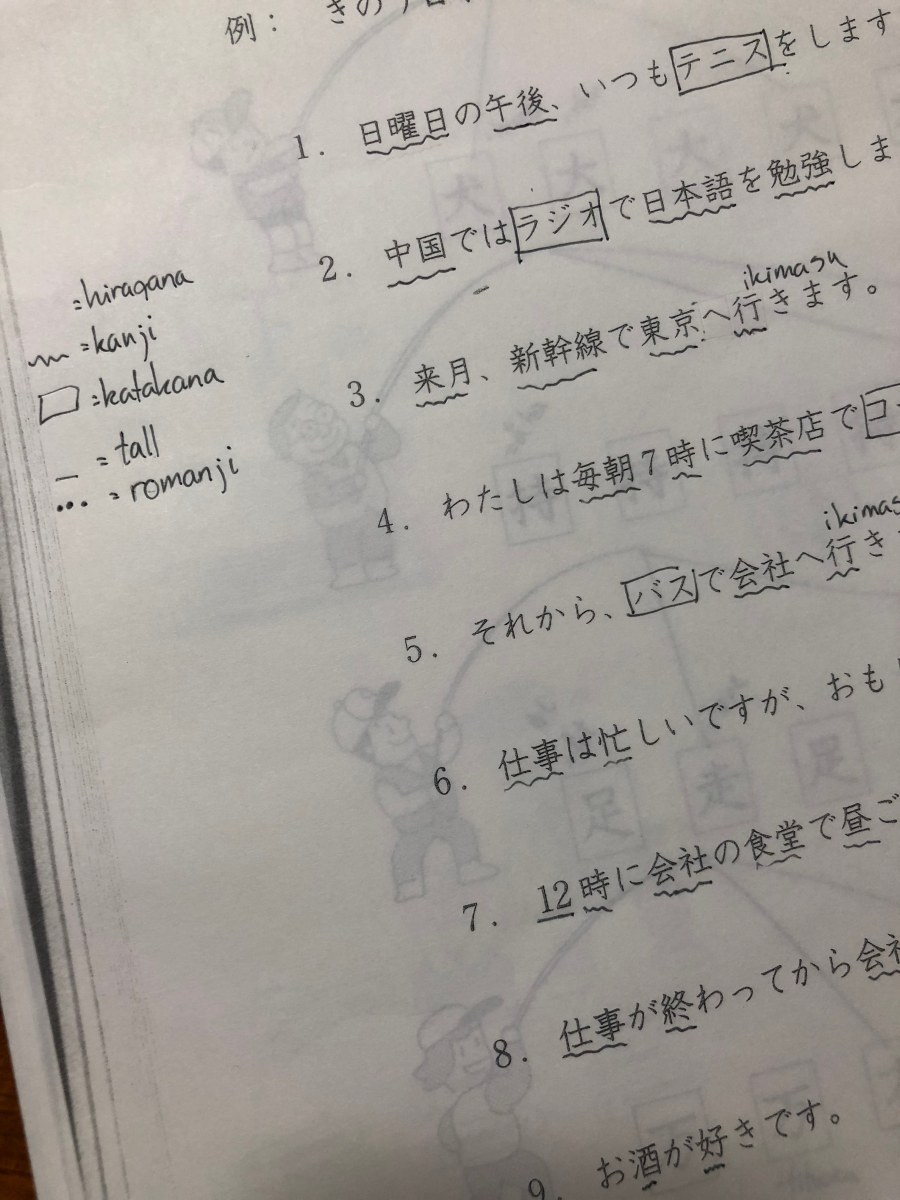 例： きのう
1. 日曜日の午後、いつもテニスをします
2. 中国ではラジオで日本語を勉強しま
ikimasu
3. 来月、新幹線で東京へ行きます。
4. わたしは毎朝7時に喫茶店でコ
ikimas
5. それから、バスで会社へ行き
6. 仕事は忙しいですが、おもし
7. 12時に会社の食堂で昼ご
8. 仕事が終わってから会社
9. お酒が好きです。
=hiragana
=kanji
=katakana
= tall
= romanji